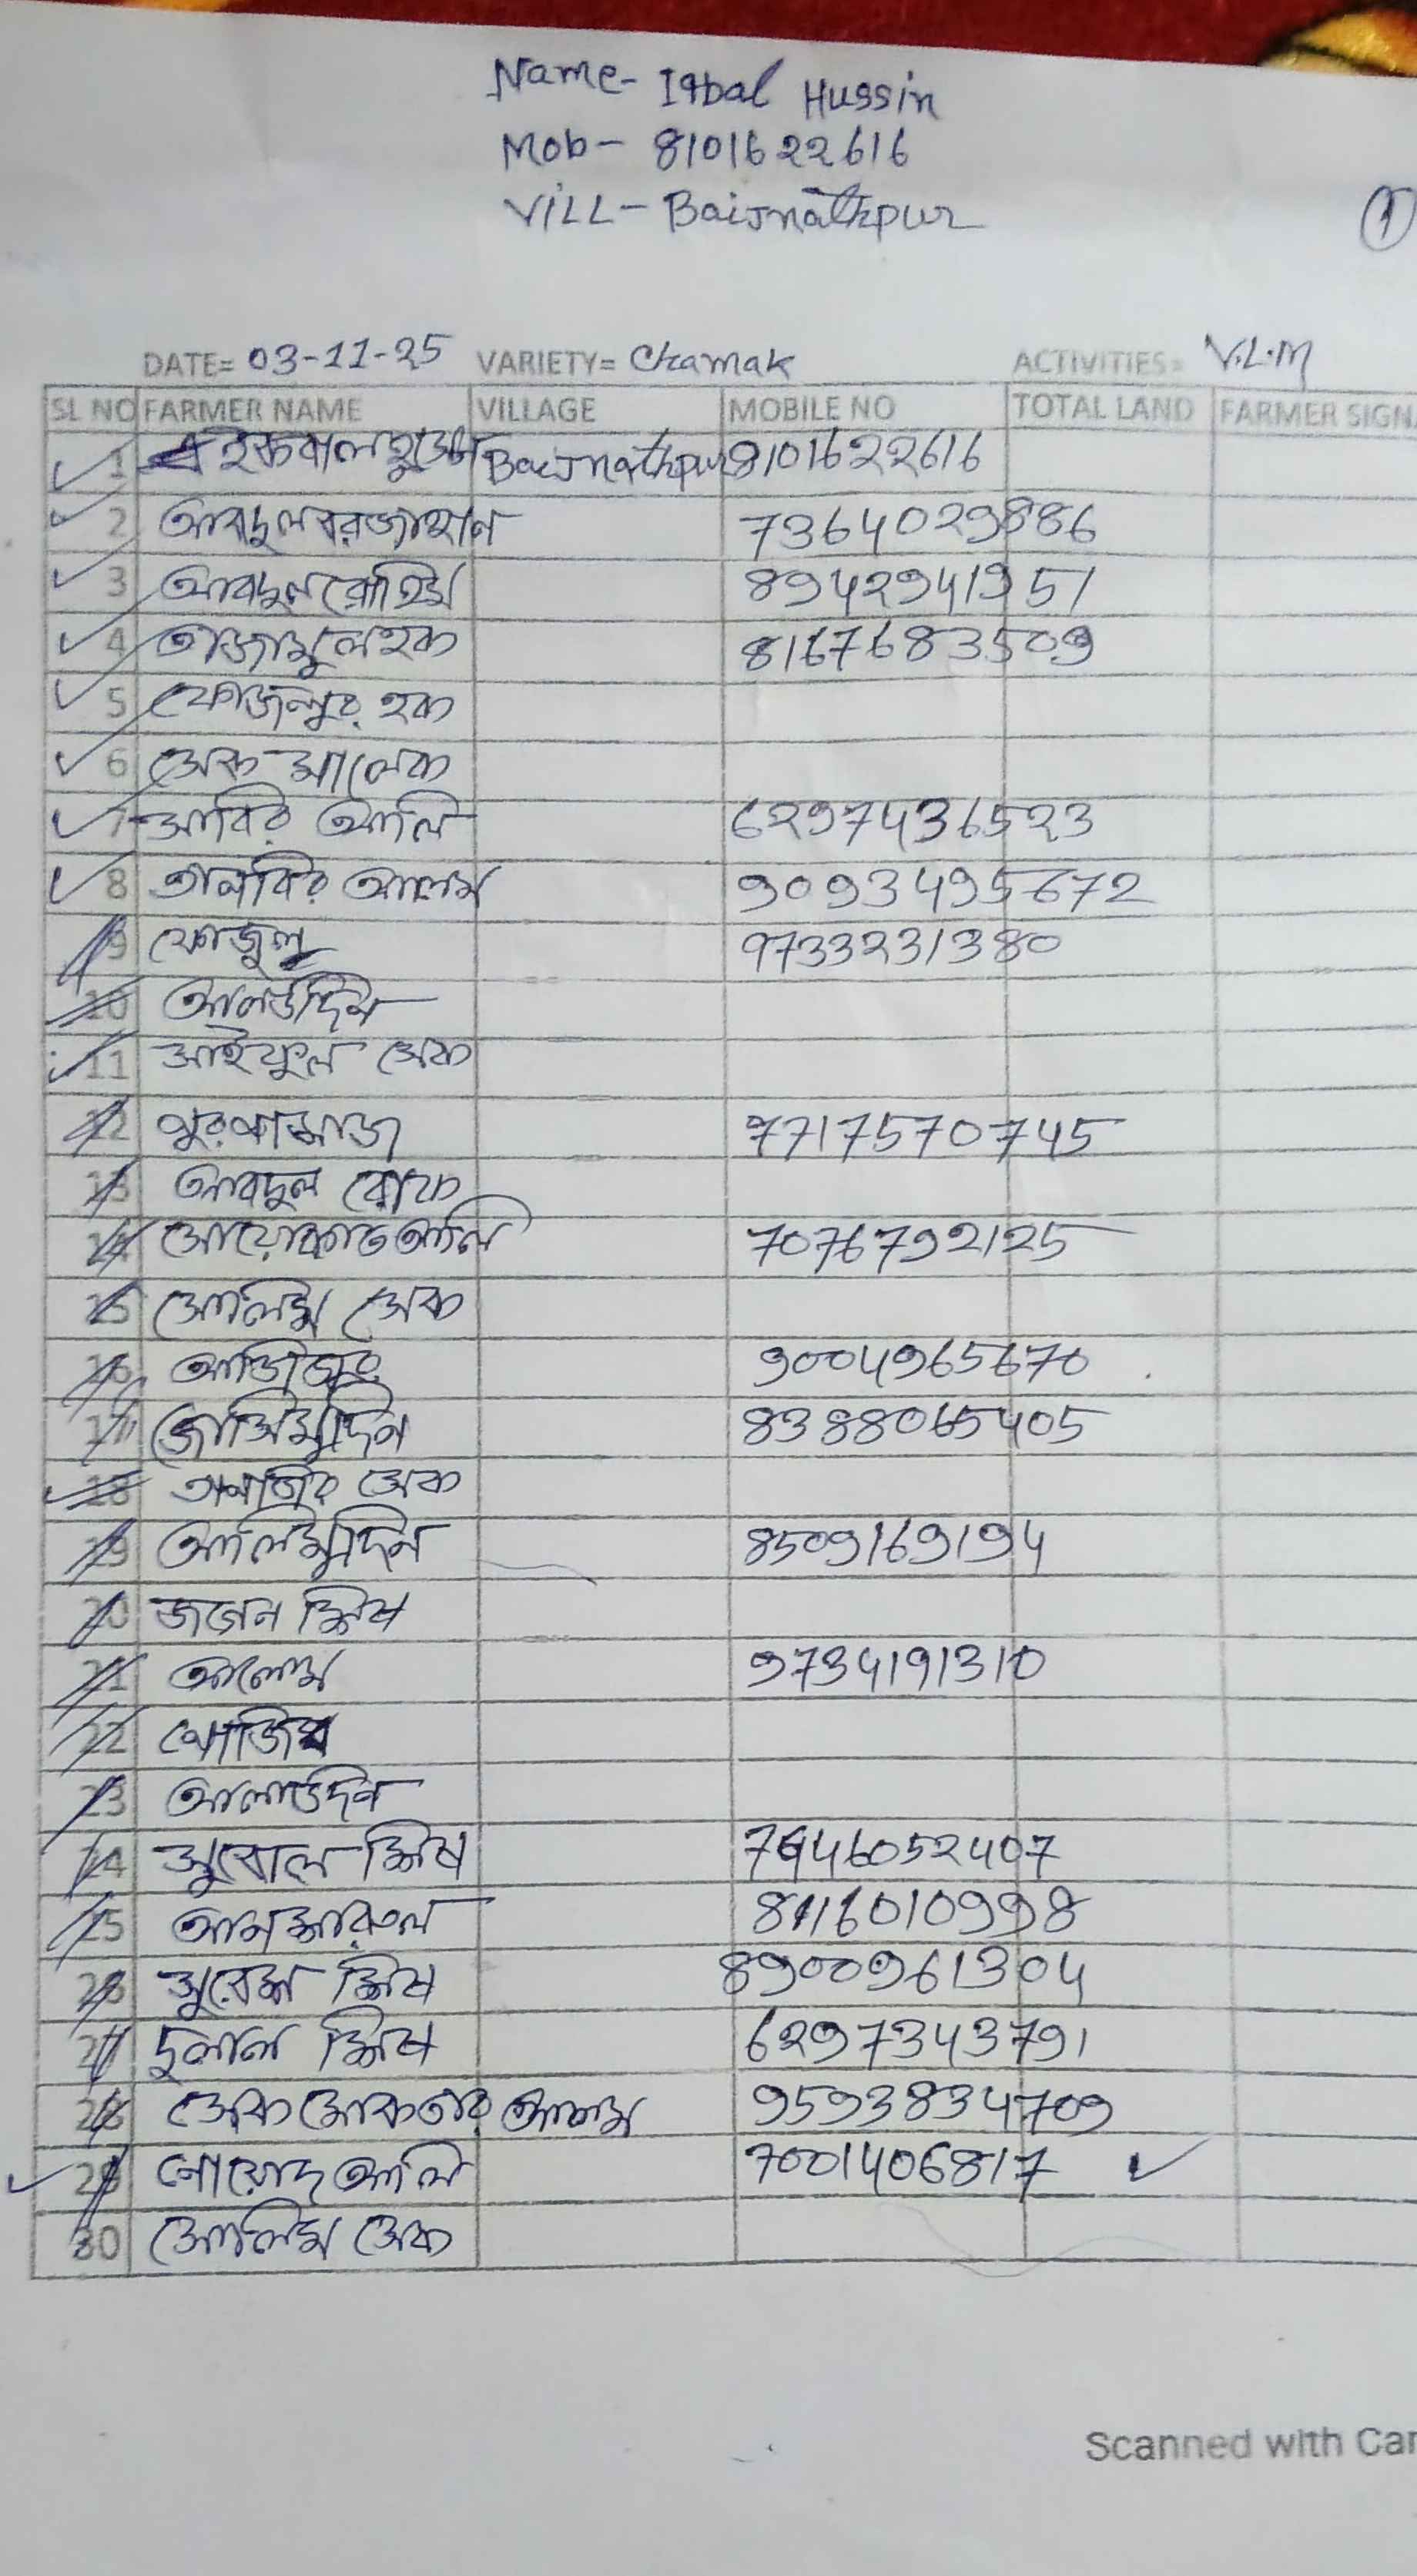 Name- Iqbal Hussin
Mob- 8101622616
VILL- Baijnathpur
1
DATE= 03-11-25 VARIETY= Chamak ACTIVITIES= V.L.M
SL NO FARMER NAME VILLAGE MOBILE NO TOTAL LAND FARMER SIGN
1 ইকবাল হুসেন Baijnathpur 8101622616
2 আবদুল 7364029886
3 আবদুল রোহিম 8942941951
4 তাজামুল হক 8167683509
5 ফোজলুর হক
6 সেক মালেক
7 সাবির আলি 6297436523
8 তানবির আলম 9093495672
9 ফোজুল 9733231380
10 আলউদ্দিন
11 সাইফুল সেক
12 7717570745
13 আবদুল রোফ
14 আলি 7076792125
15 সোলিম সেক
16 আজিজুর 9004965670
17 জোসিমুদ্দিন 8388065405
18 সেক
19 আলিমুদ্দিন 8509169194
20 শিষ
21 আলোম 9734191310
22
23 আলাউদ্দিন
24 সুবোল শিষ 052407
25 8116010998
26 সুরেশ শিষ 8900961304
27 দুলাল শিষ 6297343791
28 সেক সোকতার আলম 9593834709
29 আলি 7001406817
30 সোলিম সেক
Scanned with Car